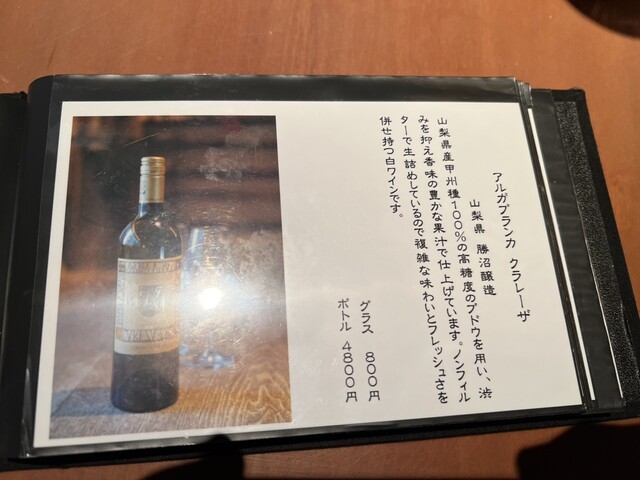 アルガブランカ クラレーザ
山梨県 勝沼醸造
山梨県産甲州種100%の高糖度のブドウを用い、渋
みを抑え香味の豊かな果汁で仕上げています。ノンフィル
ターで生詰めしているので複雑な味わいとフレッシュさを
併せ持つ白ワインです。
グラス 800円
ボトル 4800円